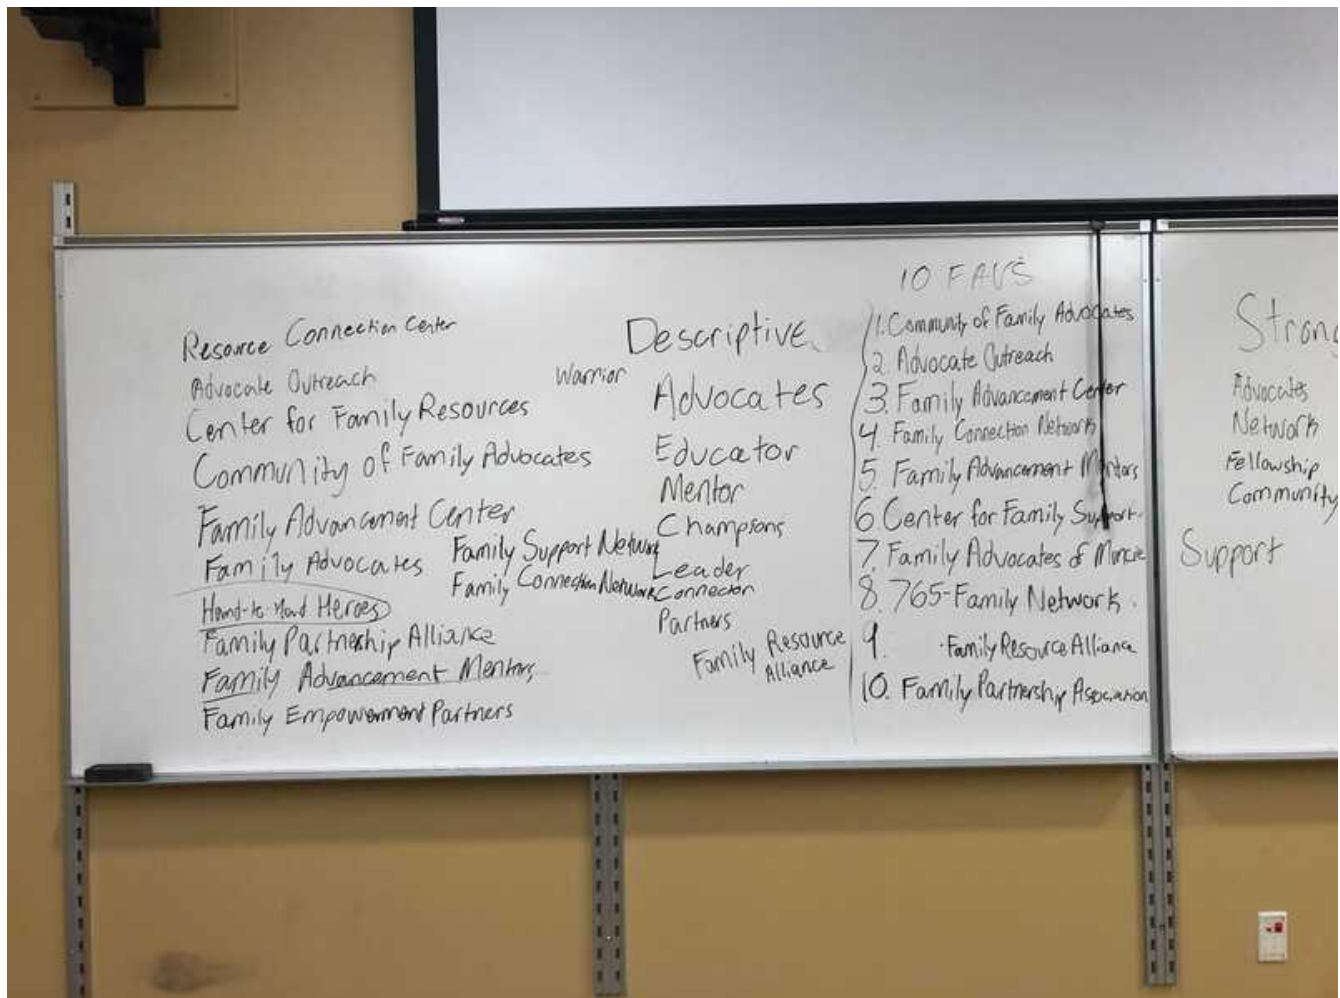 Resource Connection Center
Advocate Outreach
Center for Family Resources
Community of Family Advocates
Family Advancement Center
Family Advocates
Hand-to-Hand Heroes
Family Partnership Alliance
Family Advancement Mentors
Family Empowerment Partners
Family Support Network
Family Connection Network
Descriptive
Warrior
Advocates
Educator
Mentor
Champions
Leader
Connector
Partners
Family Resource
Alliance
10 FAVS
1. Community of Family Advocates
2. Advocate Outreach
3. Family Advancement Center
4. Family Connection Network
5. Family Advancement Mentors
6. Center for Family Support
7. Family Advocates of Muncie
8. 765-Family Network
9. Family Resource Alliance
10. Family Partnership Association
Strong
Advocates
Network
Fellowship
Community
Support